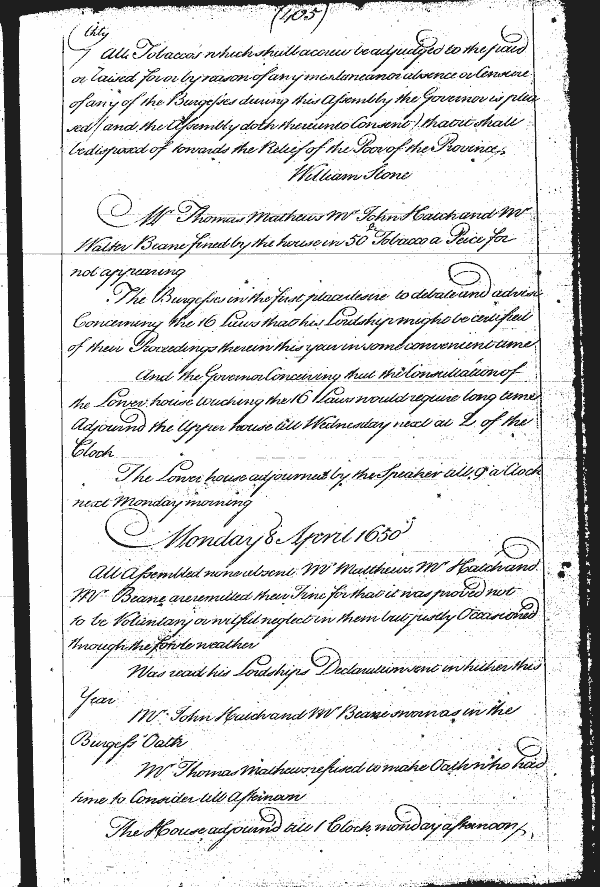 (405)
City
All Tobacco's which shall accrew be adjudged to the paid
or raised for or by reason of any misdemeanor absence or Censure
of any of the Burgesses during this Assembly the Governor is plea
sed (and the Assembly doth thereunto Consent) that it shall
be disposed of towards the Relief of the Poor of the Province,
William Stone
Mr Thomas Mathews Mr John Hatch and Mr
Walter Beane fined by the house in 50 lb Tobacco a Peice for
not appearing
The Burgesses in the first place desire to debate and advise
Concerning the 16 Laws that his Lordship might be certified
of their Proceedings therein this year in some convenient time
And the Governor Conceiving that the Consultation of
the Lower house touching the 16 Laws would require long time
Adjournd the Upper house till Wednesday next at 2 of the
Clock
The Lower house adjourned by the Speaker till 9 a Clock
next Monday morning
Monday 8 April 1650
All Assembled none absent. Mr Matthews, Mr Hatch and
Mr Beane are remitted their Fine for that it was proved not
to be Voluntary or wilful neglect in them but justly Occasioned
through the fowle weather
Was read his Lordships Declaration sent in hither this
Year
Mr John Hatch and Mr Beane sworn as in the
Burgess Oath
Mr Thomas Mathews refused to make Oath who had
time to Consider till Afternoon
The House adjournd till 1 Clock monday afternoon,